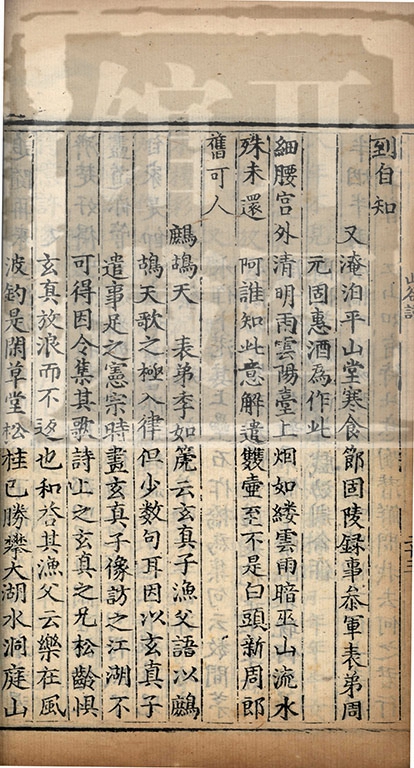 到自知
又淹泊平山堂寒食節固陵録事叅軍表弟周
元固惠酒為作此
細腰宫外清明雨雲陽臺上烟如縷雲雨暗巫山流水
殊未還　阿誰知此意解遣雙壷至不是白頭新周郎
舊可人
鷓鴣天　表弟李如箎云玄真子漁父語以鷓
鴣天歌之極入律但少数句耳因以玄真子
遺事足之憲宗時畫玄真子像訪之江湖不
可得因令集其歌詩上之玄真之兄松齡懼
玄真放浪而不返也和荅其漁父云樂在風
波釣是閑草堂松桂已勝攀太湖水洞庭山
山谷詞